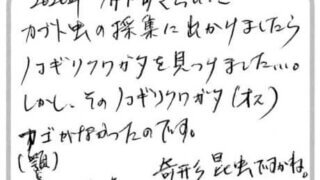 カブト虫の採集に出かけましたら
ノコギリクワガタを見つけました…。
しかし、そのノコギリクワガタ(オス)
カゴがなかったのです。
(顎)
奇形昆虫ですかね。